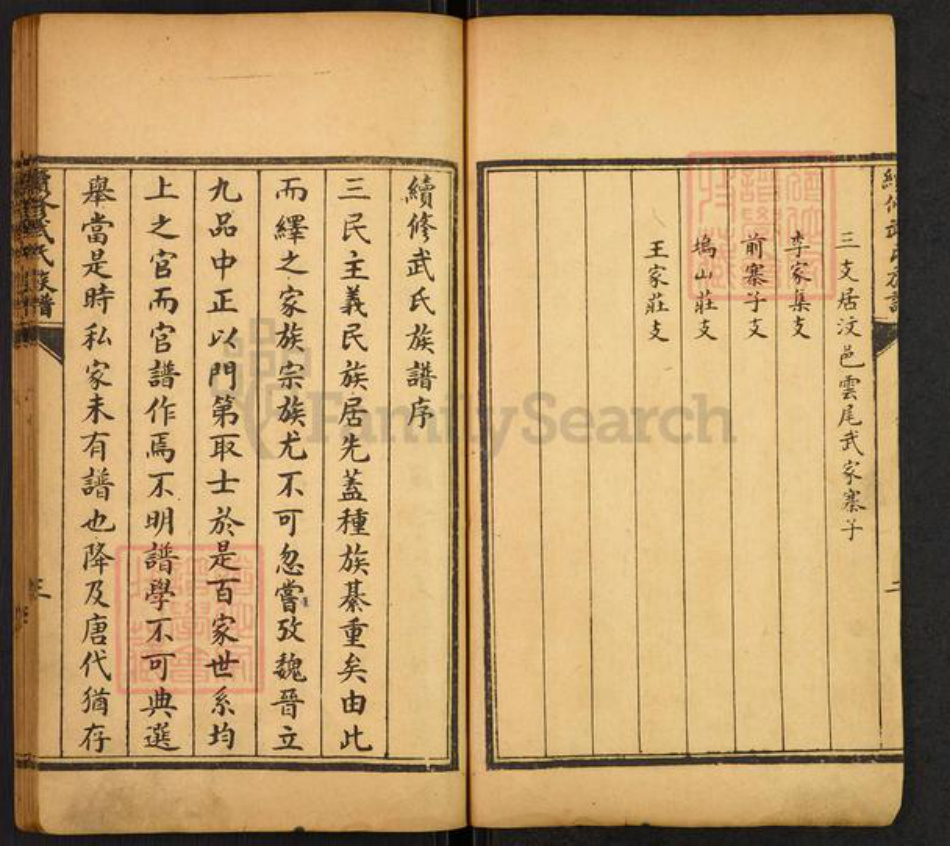 續修武氏族譜
三支居汶邑雲尾武家寨子
李家集支
前寨子支
塢山莊支
王家莊支
續修武氏族譜序
三民主義民族居先蓋種族綦重矣由此
而繹之家族宗族尤不可忽嘗攷魏晉立
九品中正以門第取士於是百家世系均
上之官而官譜作焉不明譜學不可典選
舉當是時私家未有譜也降及唐代猶存
續修武氏族譜
三
FamilySearch